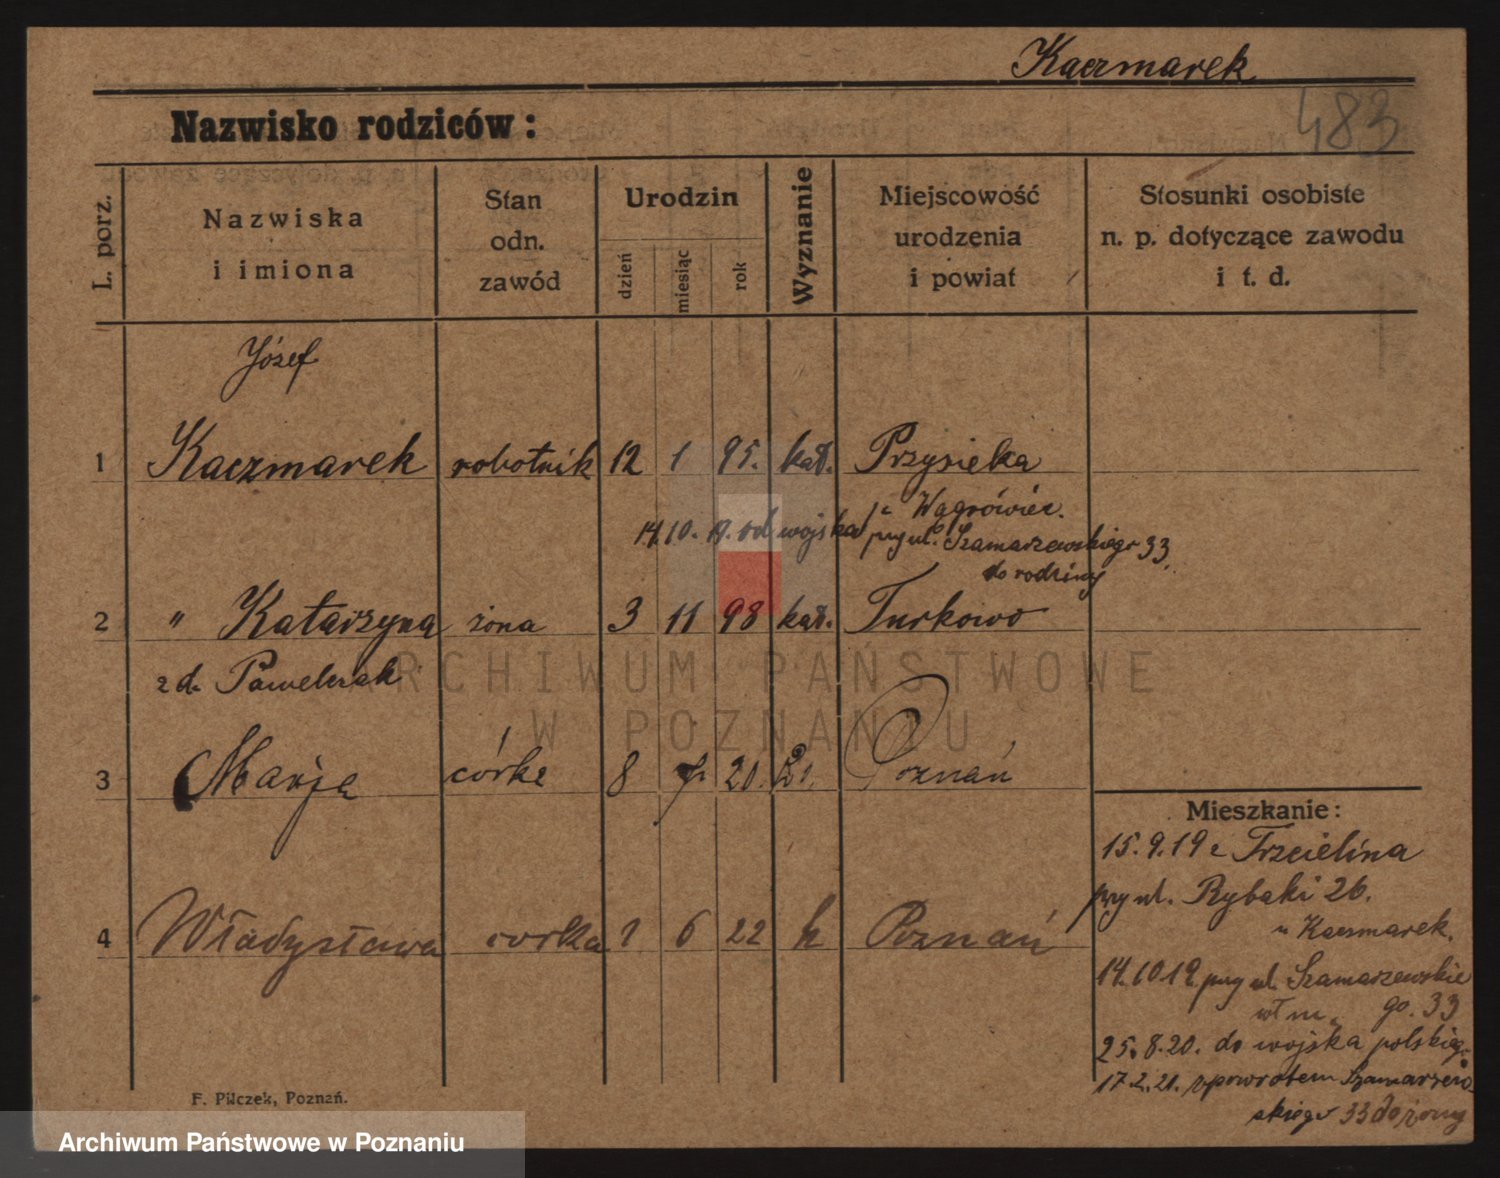 Kaczmarek
483
Nazwisko rodziców:
L. porz.
Nazwiska
i imiona
Stan
odn.
zawód
Urodzin
dzień
miesiąc
rok
Wyznanie
Miejscowość
urodzenia
i powiat
Stosunki osobiste
n. p. dotyczące zawodu
i t. d.
Józef
1 Kaczmarek robotnik 12 1 95. kat. Przysieka
Wągrówiec.
14.10.19. od wojska przy ul. Szamarzewskiego 33
do rodziny
2 " Katarzyna żona 3 11 98 kat. Turkowo
z d. Pawelczak
3 Marja córka 8 20. Poznań
4 Władysława corka 1 6 22 k Poznań
Mieszkanie:
15.9.19 z Trzcielina
przy ul. Rybaki 26.
u Kaczmarek.
14.10.19. przy ul. Szamarzewskie
go. 33
25.8.20. do wojska polskiego
17.2.21. spowrotem Szamarzew
skiego 33 do żony
F. Pilczek, Poznań.
ARCHIWUM PAŃSTWOWE
W POZNANIU
Archiwum Państwowe w Poznaniu